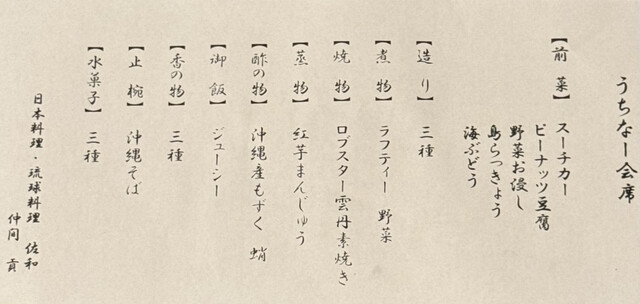 うちなー会席
【前菜】 スーチカー
ピーナッツ豆腐
野菜お浸し
島らっきょう
海ぶどう
【造り】 三種
【煮物】 ラフティー 野菜
【焼物】 ロブスター雲丹素焼き
【蒸物】 紅芋まんじゅう
【酢の物】 沖縄産もずく 蛸
【御飯】 ジューシー
【香の物】 三種
【止椀】 沖縄そば
【水菓子】 三種
日本料理・琉球料理 佐和
仲間 貢